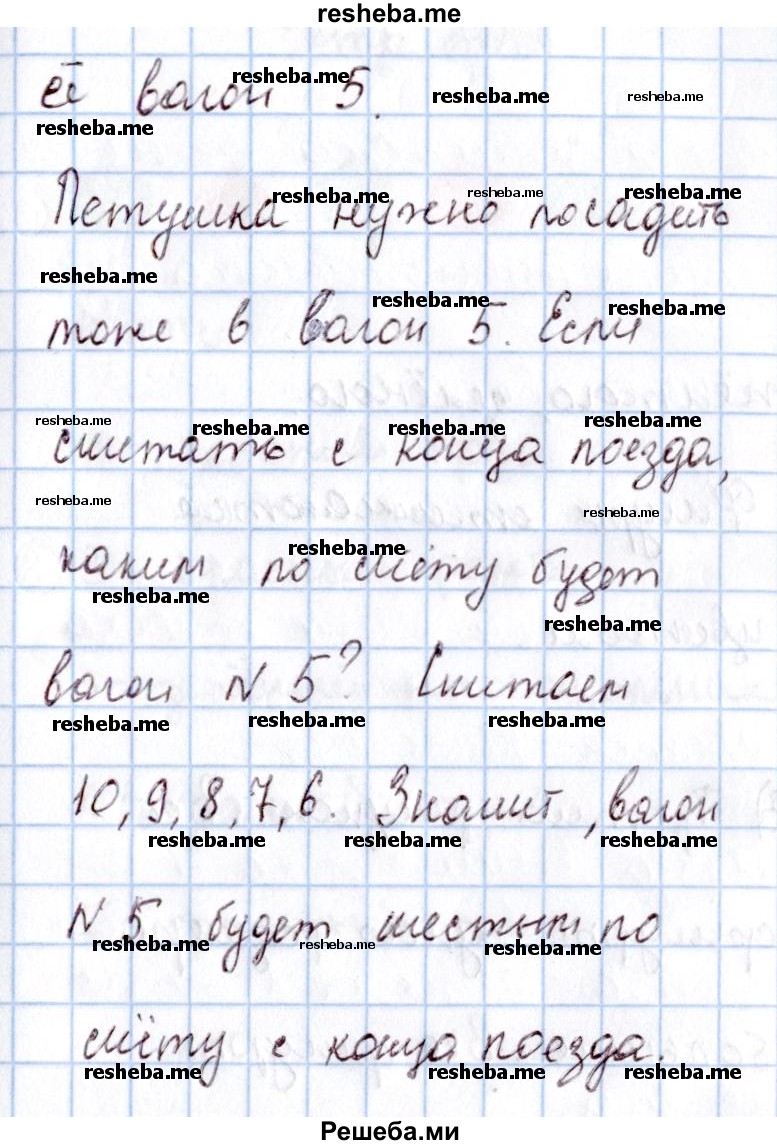 resheba.me
её вагон 5.
resheba.me resheba.me resheba.me
resheba.me
Петушка нужно посадить
resheba.me resheba.me resheba.me
resheba.me
тоже в вагон 5. Если
resheba.me resheba.me
считать с конца поезда,
resheba.me resheba.me resheba.me resheba.me
resheba.me resheba.me
каким по счёту будет
resheba.me
resheba.me
resheba.me
вагон N 5? Считаем
resheba.me resheba.me resheba.me
10, 9, 8, 7, 6. Значит, вагон
resheba.me resheba.me resheba.me
N 5 будет шестым по
resheba.me resheba.me resheba.me
счёту с конца поезда.
resheba.me resheba.me resheba.me
Решеба.ми